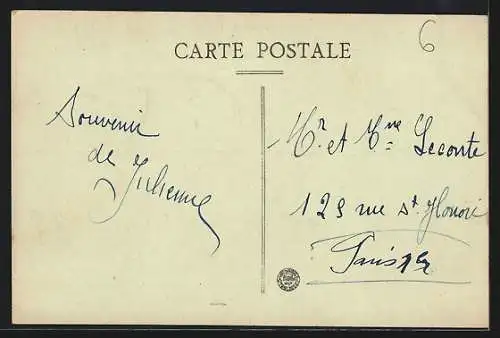 CARTE POSTALE
6
Souvenir
de
Mr. et Mme Leconte
129 rue St Honoré
Paris 1er